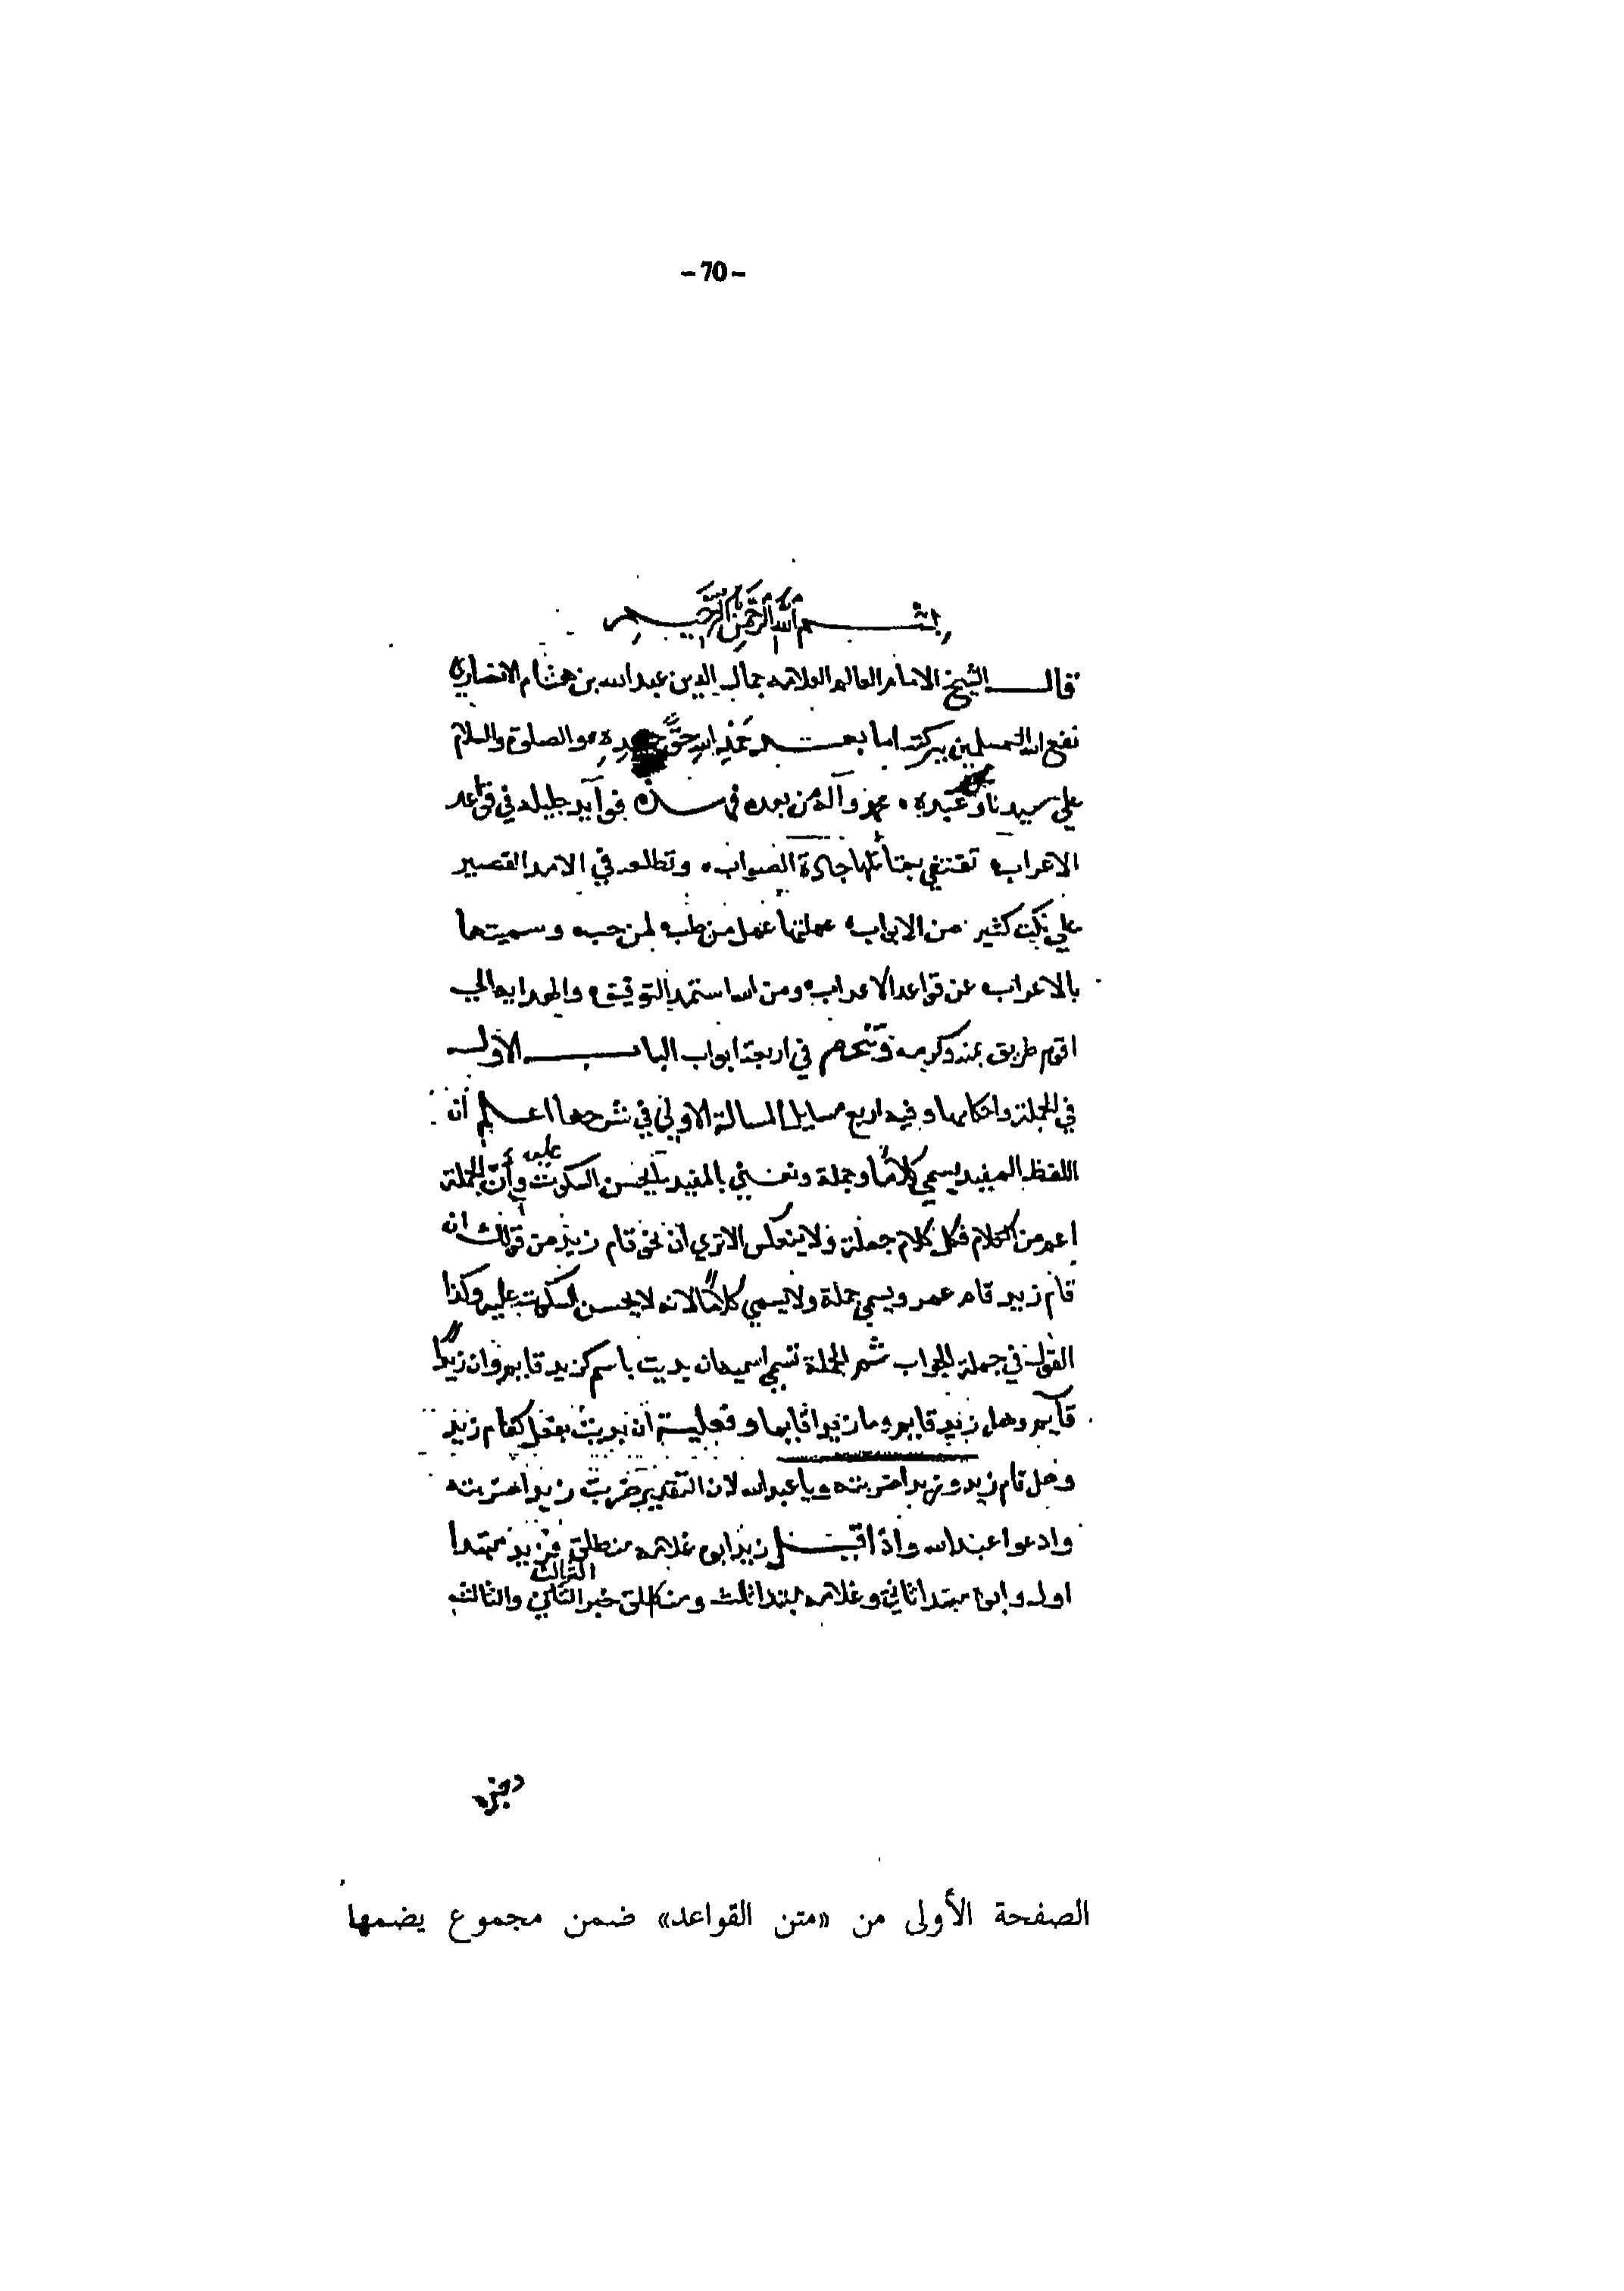 - 70 -
بسم الله الرحمن الرحيم
قال الشيخ الامام العالم العلامه جمال الدين عبد الله بن هشام الانصاري
نفع الله المسلمين ببركته اما بعد حمد الله حق حمده والصلوة والسلام
علي سيدنا وعبده محمد وآله من بعده فهذه فوآيد جليله في قواعد
الاعراب تقتفي بمتأملها جادة الصواب وتطلعه في الامد القصير
علي نكت كثير من الابواب عملتها عمل من طب لمن حب وسميتها
بالاعراب عن قواعد الاعراب ومن الله استمد التوفيق والهدايه الي
اقوم طريق بمنه وكرمه وتنحصر في اربعة ابواب الباب الاول
في الجملة واحكامها وفيه اربع مسايل المسالة الاولي في شرحها اعلم أن
اللفظ المفيد يسمي كلامًا وجملة ونعني بالمفيد ما يحسن السكوت عليه وأن الجملة
اعم من الكلام فكل كلام جملة ولا ينعكس الا تري ان نحو قام زيد من قولك ان
قام زيد قام عمرو يسمي جملة ولا يسمي كلامًا لانه لا يحسن السكوت عليه وكذا
القول في جملة الجواب ثم الجملة تسمي اسميه ان بديت باسم كزيد قايم وان زيدًا
قآيم وهل زيد قايم وما زيد قايما وفعلية ان بديت بفعل كقام زيد
وهل قام زيد وزيدا ضربته ويا عبد الله لان التقدير ضربت زيدا ضربته
وادعوا عبد الله واذا قيل زيد ابوه غلامه منطلق فزيد مبتدا
اول وابوه مبتدا ثاني وغلامه مبتدا ثالث ومنطلق خبر الثالث والثالث
الصفحة الأولى من «متن القواعد» ضمن مجموع يضمها